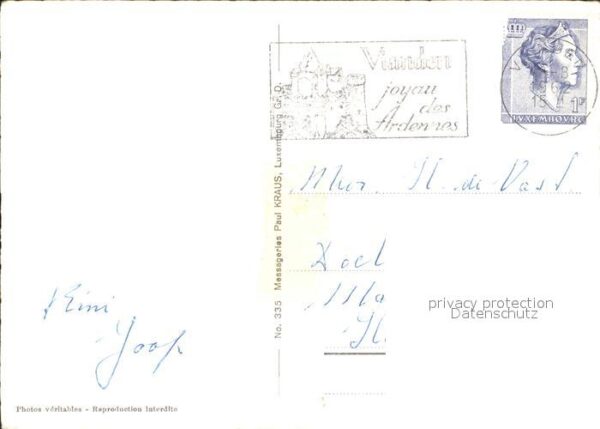 Vianden
joyau
des
Ardennes
1F
LUXEMBOURG
No. 335 Messageries Paul KRAUS, Luxembourg Gr. D.
Mhr. H. de Vast
privacy protection
Datenschutz
Rini
Joop
Photos véritables - Reproduction interdite